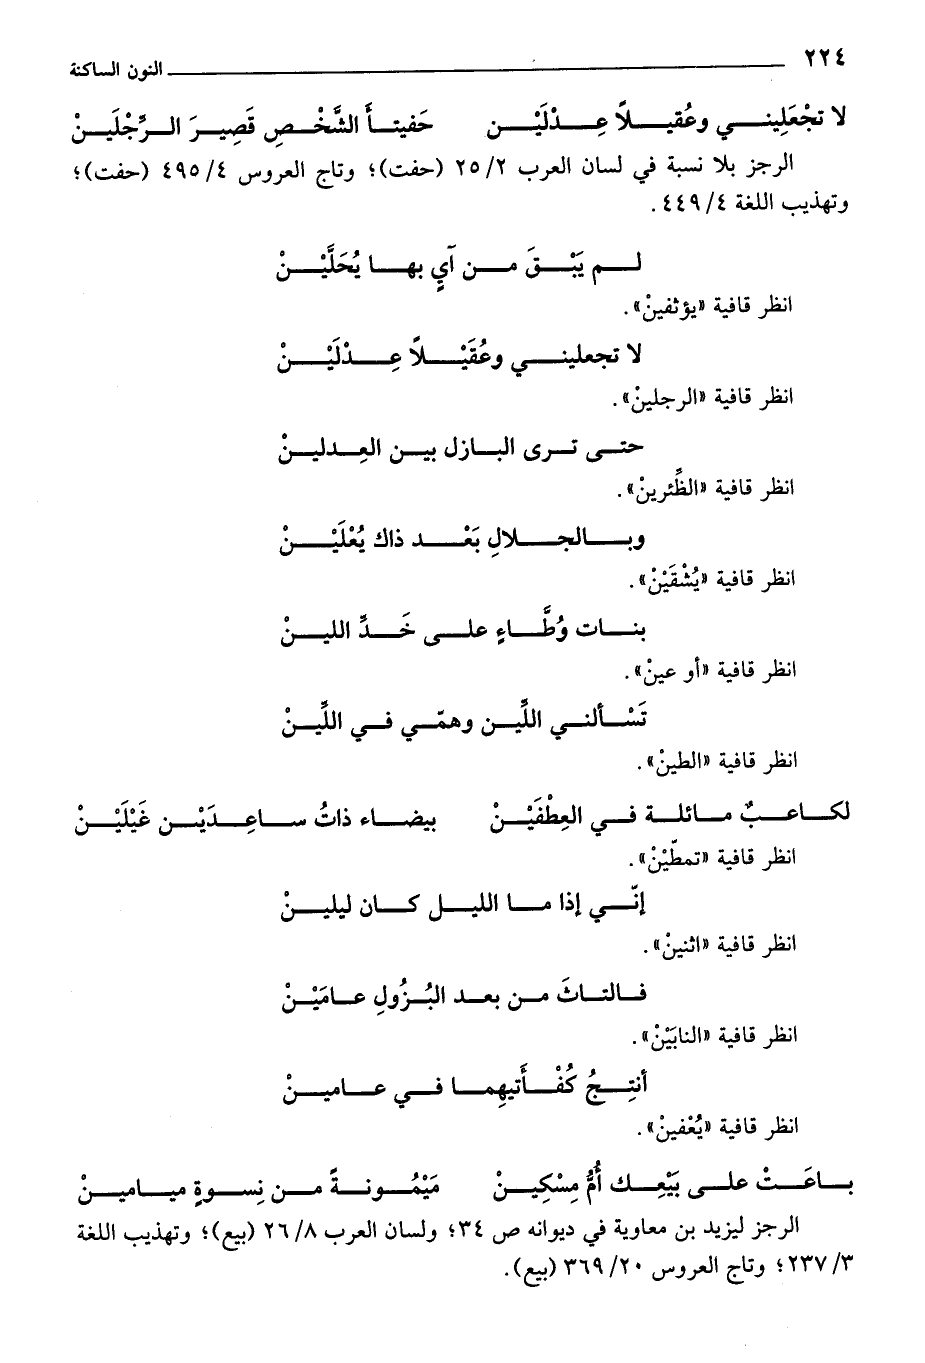 ٢٢٤ النون الساكنة
لا تجْعَلِيني وعُقيلاً عِدْلَيْنْ حَفيتأَ الشَّخْصِ قَصِيرَ الرِّجْلَيْنْ
الرجز بلا نسبة في لسان العرب ٢/ ٢٥ (حفت)؛ وتاج العروس ٤/ ٤٩٥ (حفت)؛
وتهذيب اللغة ٤/ ٤٤٩.
لم يَبْقَ من آيٍ بها يُحَلَّيْنْ
انظر قافية «يؤثفينْ».
لا تجعليني وعُقَيْلاً عِدْلَيْنْ
انظر قافية «الرجلينْ».
حتى ترى البازل بين العِدلينْ
انظر قافية «الظِّئرينْ».
وبالجلالِ بَعْد ذاك يُعْلَيْنْ
انظر قافية «يُشْقَيْنْ».
بنات وُطَّاءٍ على خَدِّ اللينْ
انظر قافية «أو عينْ».
تَسْألني اللَّين وهمّي في اللَّينْ
انظر قافية «الطينْ».
لكاعبٌ مائلة في العِطْفَيْنْ بيضاء ذاتُ ساعِدَيْن غَيْلَيْنْ
انظر قافية «تمطّيْنْ».
إنّي إذا ما الليل كان ليلينْ
انظر قافية «اثنينْ».
فالتاثَ من بعد البُزُولِ عامَيْنْ
انظر قافية «النابَيْنْ».
أنتِجُ كُفْأَتيهِما في عامينْ
انظر قافية «يُعْفينْ».
باعَتْ على بَيْعِك أُمُّ مِسْكِينْ مَيْمُونةً من نِسوةٍ ميامينْ
الرجز ليزيد بن معاوية في ديوانه ص ٣٤؛ ولسان العرب ٨/ ٢٦ (بيع)؛ وتهذيب اللغة
٣/ ٢٣٧؛ وتاج العروس ٢٠/ ٣٦٩ (بيع).